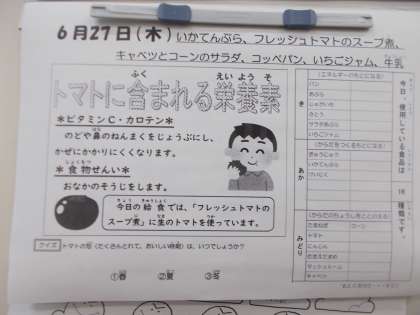 6月27日(木) いかてんぷら、フレッシュトマトのスープ煮、
キャベツとコーンのサラダ、コッペパン、いちごジャム、牛乳
トマトに含まれる栄養素
ふく えいようそ
＊ビタミンC・カロテン＊
のどや鼻のねんまくをじょうぶにし、
かぜにかかりにくくなります。
＊食物せんい＊
おなかのそうじをします。
今日の給食では、「フレッシュトマトの
スープ煮」に生のトマトを使っています。
クイズ トマトの旬(たくさんとれて、おいしい時期)は、いつでしょうか？
①春 ②夏 ③冬
今日、使用している食品は
種類です。
き
(エネルギーのもとになる)
パン
あぶら
じゃがいも
さとう
いちごジャム
あか
(からだをつくるもとになる)
ぎゅうにゅう
みどり
(からだのちょうしをととのえる)
たまねぎ
コーン
トマト
にんじん
キャベツ